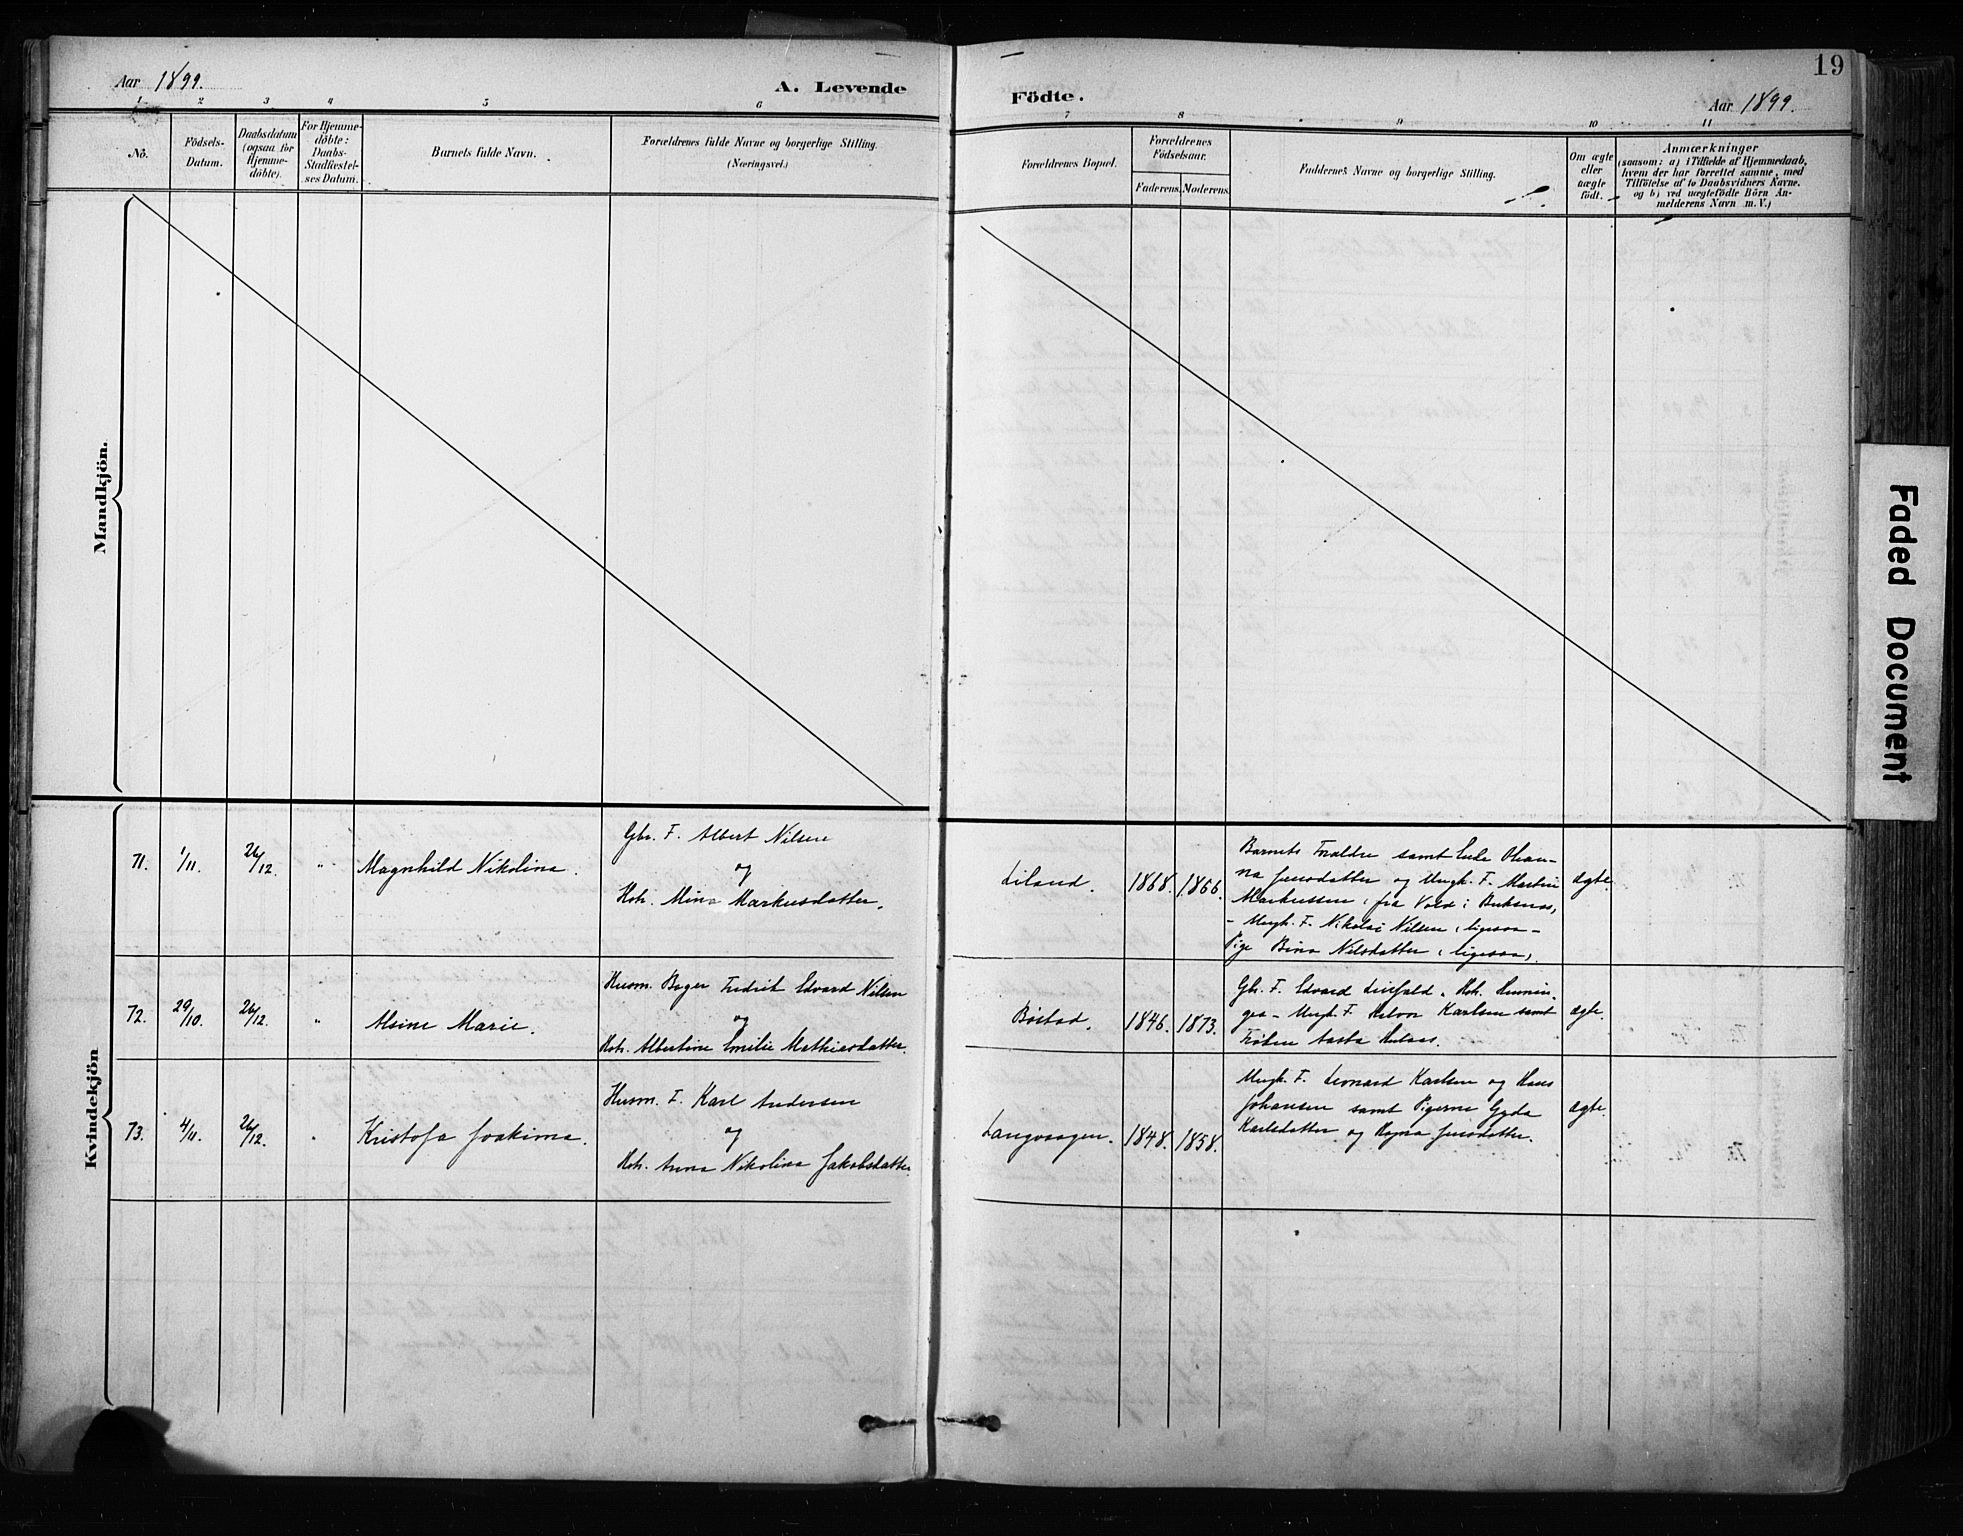 Aar 1899.
A. Levende
Födte.
Aar 1899.
19
1 2 3 4 5 6 7 8 9 10 11
No.
Födsels-
Datum.
Daabsdatum
(ogsaa for
Hjemme-
döbte).
For Hjemme-
döbte:
Daabs-
Stadfæstel-
ses Datum.
Barnets fulde Navn.
Forældrenes fulde Navne og borgerlige Stilling.
(Næringsvei.)
Forældrenes Bopæl.
Forældrenes
Födselsaar.
Faderens.
Moderens.
Faddernes Navne og borgerlige Stilling.
Om ægte
eller
uægte
födt.
Anmærkninger
(saasom: a) i Tilfælde af Hjemmedaab,
hvem der har forrettet samme, med
Tilföielse af to Daabsvidners Navne.
og b) ved uægtefödte Börn An-
melderens Navn m. V.)
Mandkjön.
Kvindekjön
71. 1/11. 26/12. " Magnhild Nikolina.
Gbr. F. Albert Nilsen
og
Hstr. Mina Markusdatter.
Liland. 1868. 1866.
Barnets Forældre samt Enke Ohan-
na Jensdatter og Ungk. F. Martin
Markussen, fra Vold i Buksnæs,
- Ungk. F. Nikolai Nilsen, ligesaa -
Pige Bina Nilsdatter, ligesaa.
ægte.
72. 29/10. 26/12. " Alsine Marie.
Husm. Bager Fredrik Edvard Nilsen
og
Hstr. Albertine Emilie Mathiasdatter.
Bøstad. 1846. 1873.
Gbr. F. Edvard Hstr.
Ungk. F. Halvor Karlsen samt
Frøken Aasta
ægte.
73. 4/11. 26/12. " Kristofa Joakima.
Husm. F. Karl Andersen
og
Hstr. Anna Nikolina Jakobsdatter.
Langvaagen. 1848. 1858.
Ungk. F. Leonard Karlsen og Hans
Johansen samt Pigerne Gyda
Karlsdatter og Jensdatter.
ægte.
Faded Document